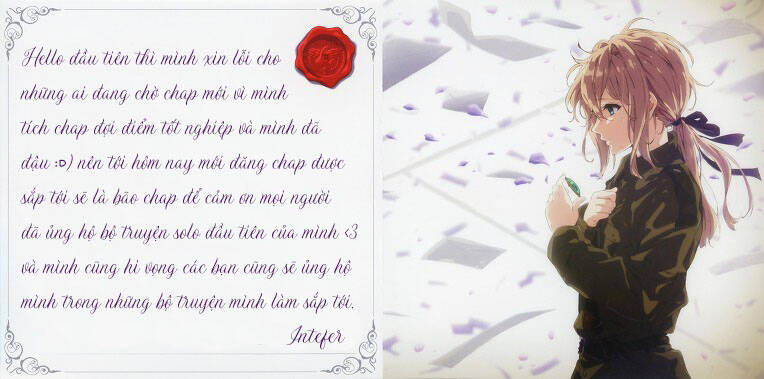 Hello đầu tiên thì mình xin lỗi cho
những ai đang chờ chap mới vì mình
tích chap đợi điểm tốt nghiệp và mình đã
đậu :D) nên tới hôm nay mới đăng chap được
sắp tới sẽ là bão chap để cảm ơn mọi người
đã ủng hộ bộ truyện solo đầu tiên của mình <3
và mình cũng hi vọng các bạn cũng sẽ ủng hộ
mình trong những bộ truyện mình làm sắp tới.
Intefer